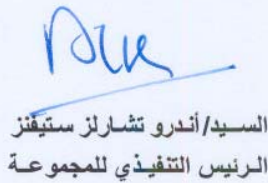 السيد/أندرو تشارلز ستيفنز
الرئيس التنفيذي للمجموعة